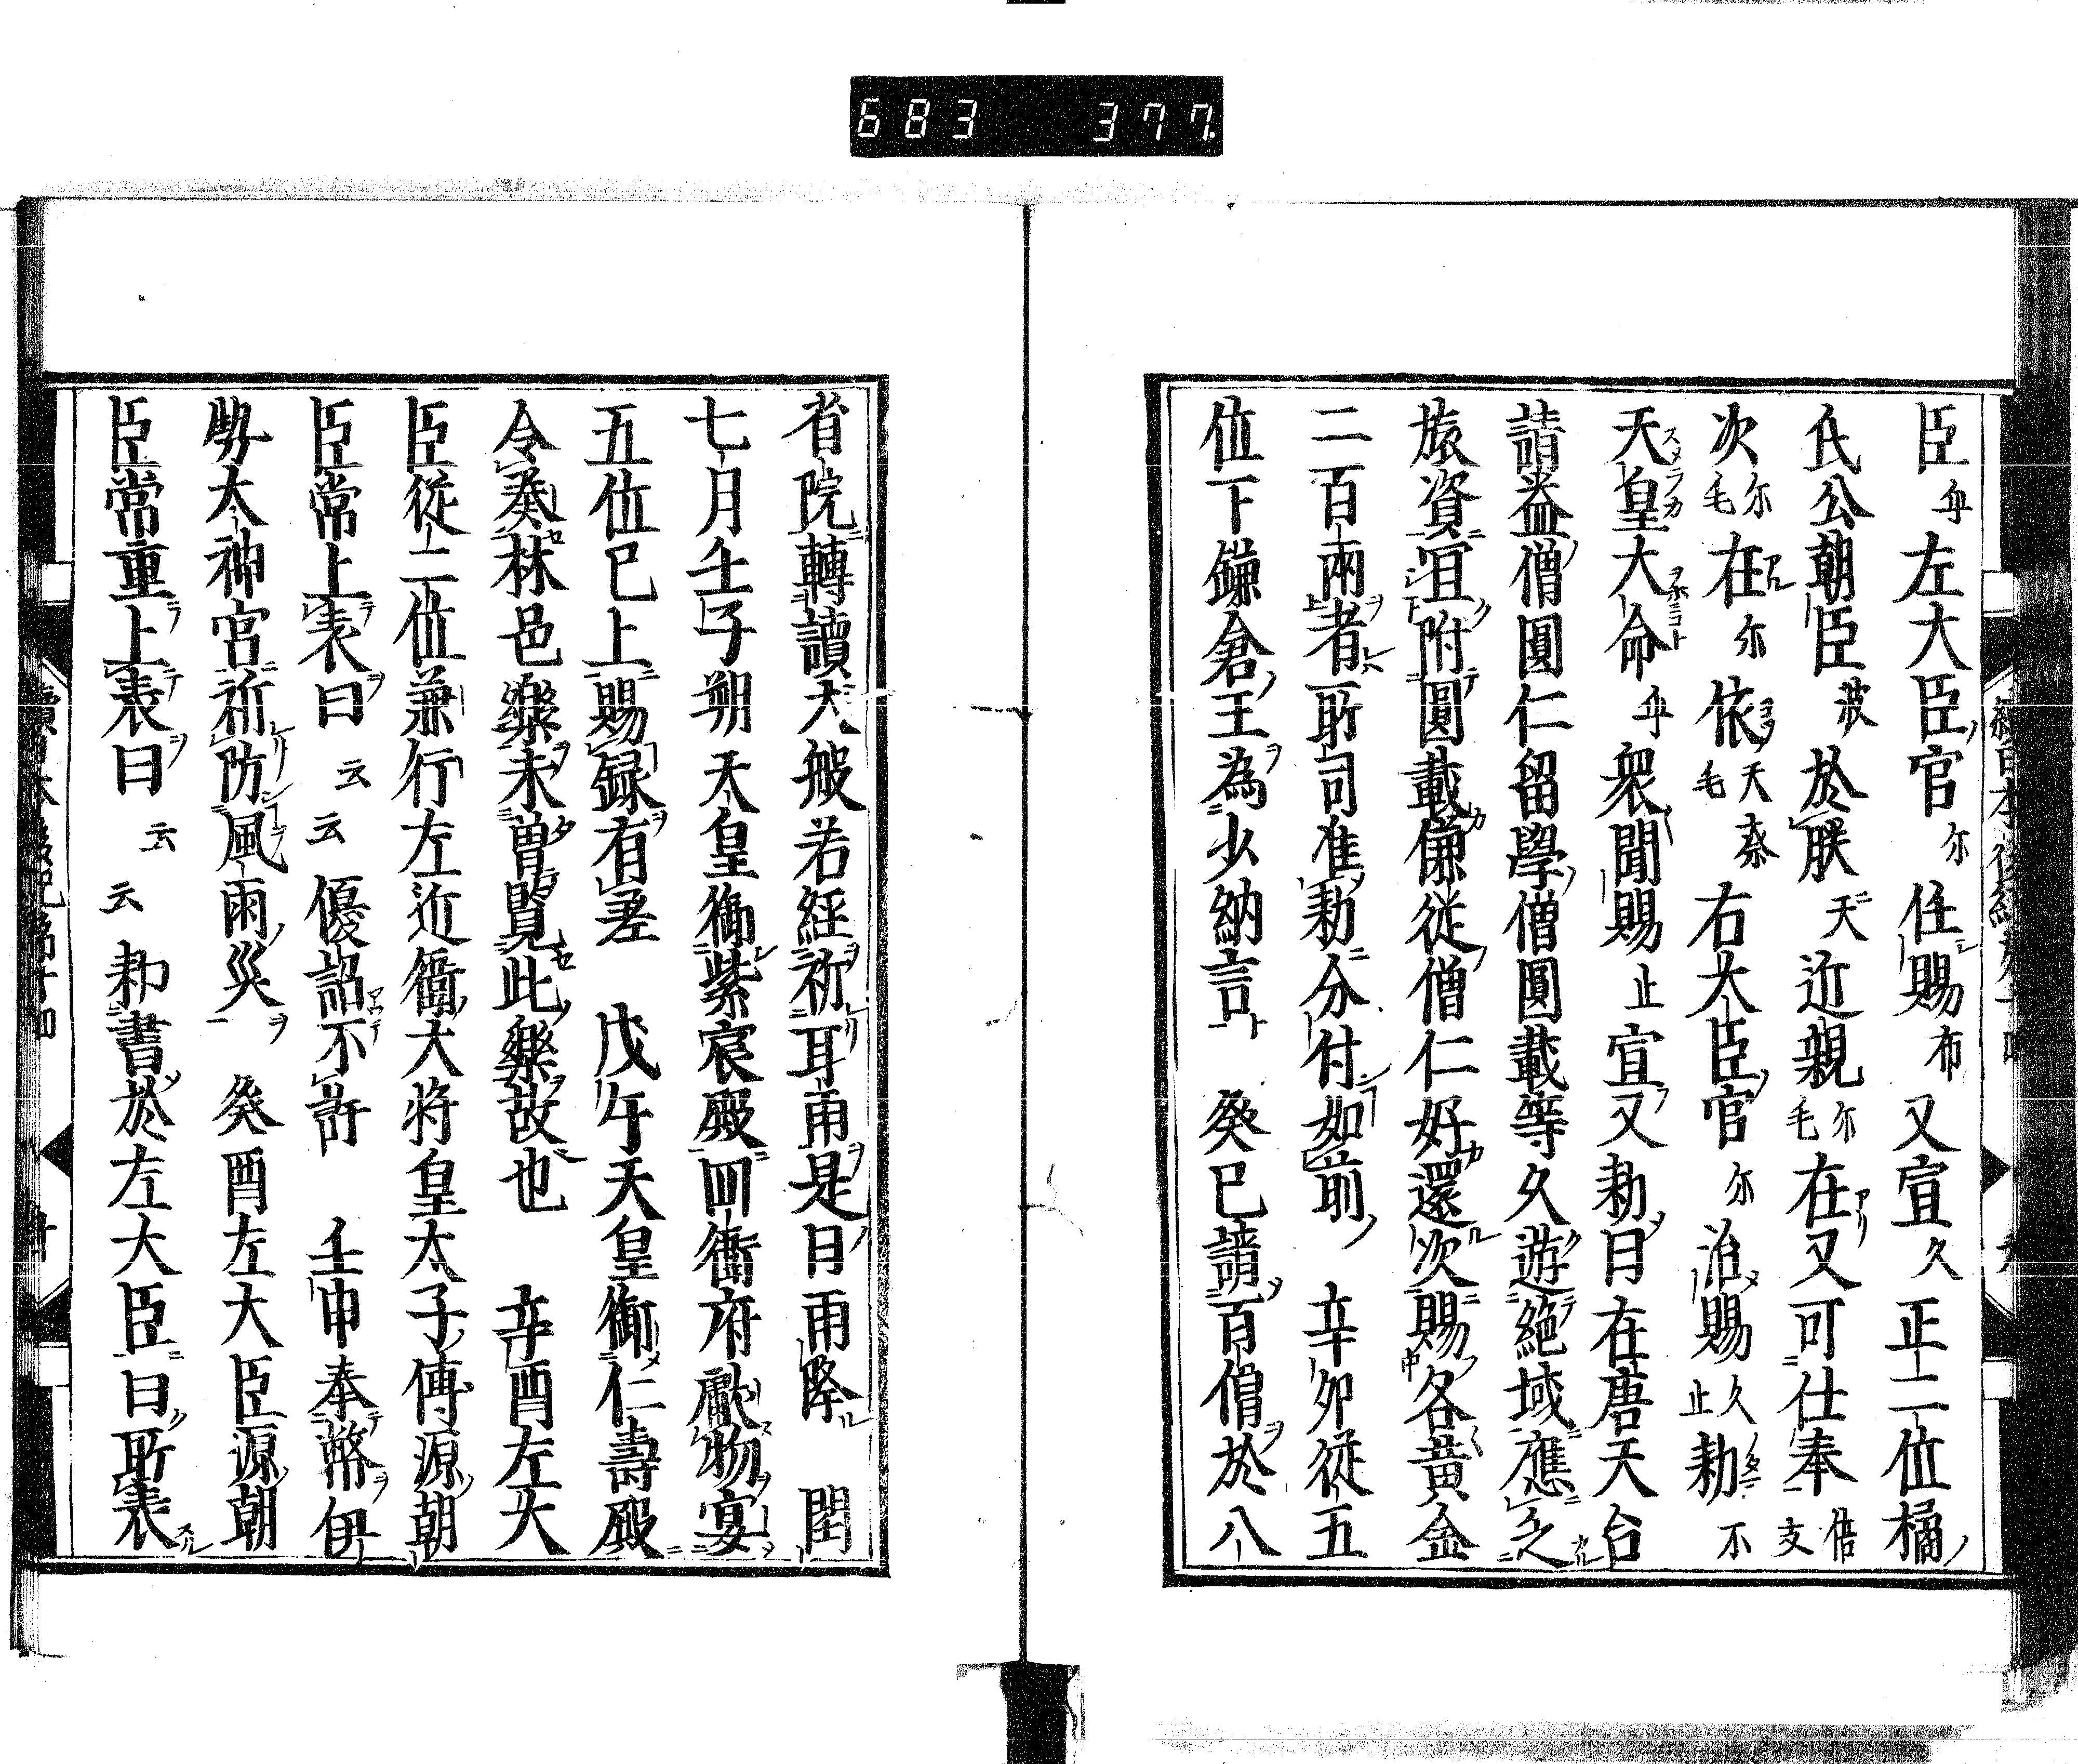 683 377
臣乎左大臣官尔任賜布又宣久正二位橘
氏公朝臣波於朕天近親尓毛在又可仕奉倍支
次尓毛在尓依天毛奈右大臣官尓治賜久止勅不
天皇大命乎衆聞賜止宣又勅曰在唐天台
請益僧圓仁留學僧圓載等久遊絶域應乏
旅資宜附圓載傔從僧仁好還次賜各黄金
二百兩者所司准勅分付如前辛卯從五
位下鎌倉王為少納言癸巳請百僧於八
省院轉讀大般若經祈甘雨是日雨降閏
七月壬子朔天皇御紫宸殿四衛府獻物宴
五位已上賜録有差戊午天皇御仁壽殿
令奏林邑樂未曽覧此樂故也辛酉左大
臣從二位兼行左近衛大将皇太子傅源朝
臣常上表曰云云優詔不許壬申奉幣伊
勢大神宮祈防風雨災癸酉左大臣源朝
臣常重上表曰云云勅書於左大臣曰所表